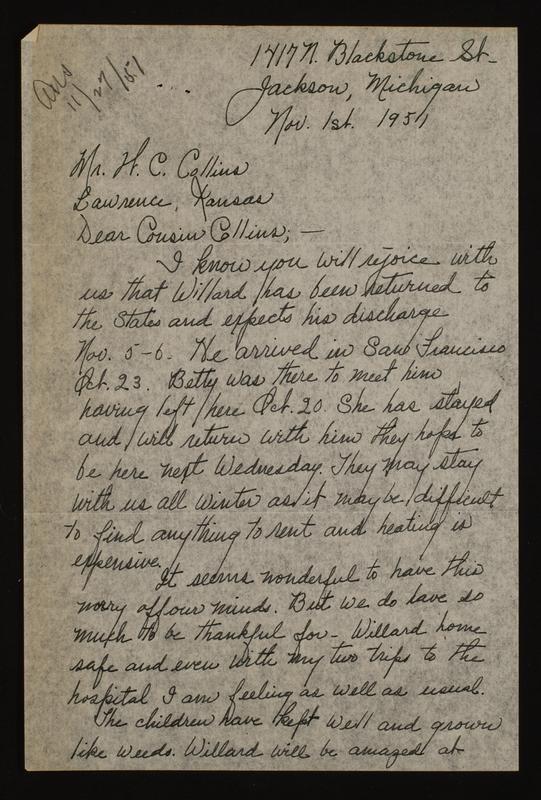 Ans
11/27/51
1417 N. Blackstone St.
Jackson, Michigan
Nov. 1st. 1951
Mr. H. C. Collins
Lawrence, Kansas
Dear Cousin Collins; —
I know you will rejoice with
us that Willard has been returned to
the States and expects his discharge
Nov. 5-6. He arrived in San Francisco
Oct. 23. Betty was there to meet him
having left here Oct. 20. She has stayed
and will return with him they hope to
be here next Wednesday. They may stay
with us all winter as it may be difficult
to find anything to rent and heating is
expensive.
It seems wonderful to have this
worry off our minds. But we do have so
much to be thankful for - Willard home
safe and even with my two trips to the
hospital I am feeling as well as usual.
The children have kept well and grown
like weeds. Willard will be amazed at